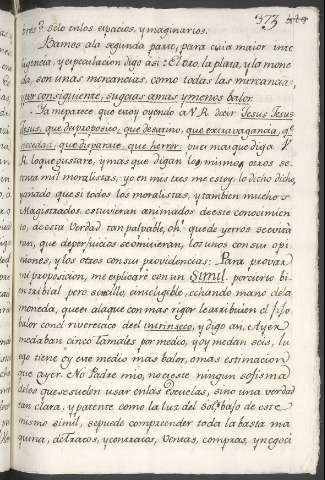 373
tres?. solo enlos espacios, ymaginarios.
Bamos ala segunda parte, para cuia maior inte
ligencia, y expeculacion digo asi: El oro, la plata, y la mone
da, son unas mercancias, como todas las mercancias,
y por consiguiente, sugetas amas y menos balor.
Ya meparece que estoy oyendo a V. R. decir Jesus Jesus
Jesus, que desproposito, que desatino, que extravagancia, q.e
necedad, que disparate, que horror. pues mas que diga V
R. loque gustare, y mas que digan lo mismo otros se
tenta mil moralistas; yo en mis tres me estoy. lo dicho dicho,
añado que si todos los moralistas, y tambien muchos
Magistrados, estuvieran animados de este conocimien
to, de esta Verdad tan palpable, oh! que de yerros se evita
ran, que de perjuicios se omitieran, los unos con sus opi
niones, y los otros con sus providencias: Para provar
mi proposicion, me explicaré con un Simil, por cierto bi-
en tribial pero sencillo, e inteligible, echando mano de la
moneda, que es alaque con mas rigor le atribuien el fijo
balor con el rivetecico de el intrinseco, y digo asi, Ayer
me daban cinco tamales por medio, y oy me dan seis, lu
ego tiene oy este medio mas balor, o mas estimacion
que ayer. No Padre mio, no es este ningun sofisma
delos que se suelen usar enlas Escuelas, sino una verdad
tan clara, y patente como la luz del Sol. bajo de este
mismo simil, se puede comprender toda la basta ma
quina, de Tratos, y contratos, Ventas, compras, y negoci